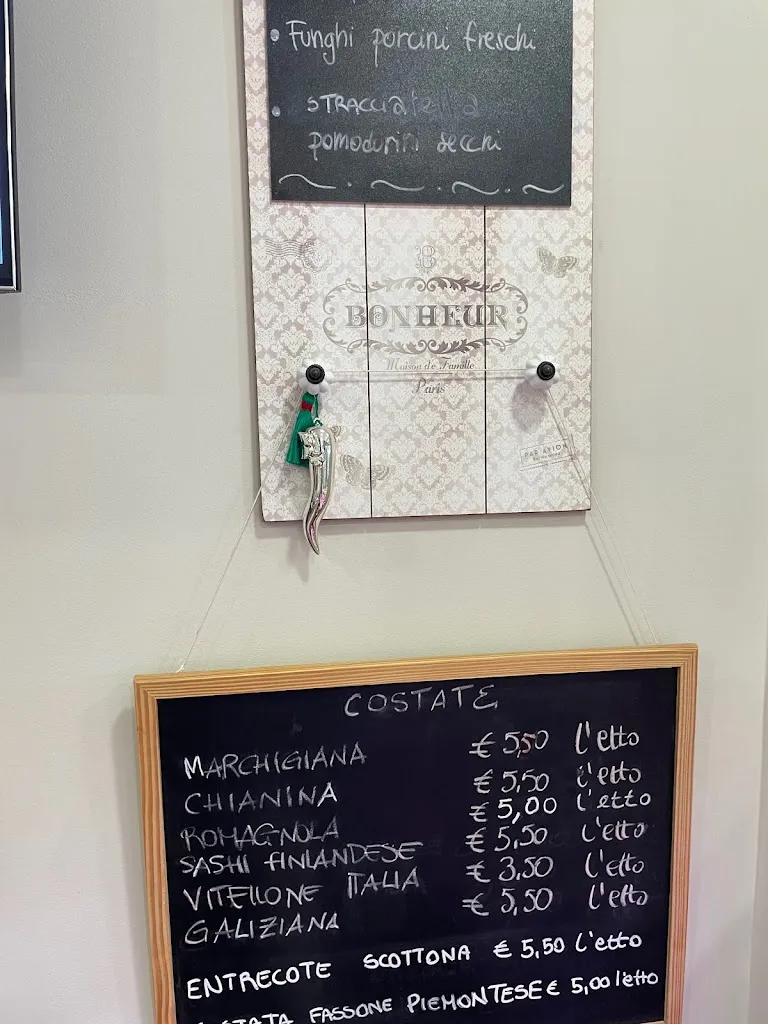 Funghi porcini freschi
STRACCIATELLA
pomodorini secchi
B
BONHEUR
Maison de Famille
Paris
PAR AVION
COSTATE
MARCHIGIANA € 5,50 l'etto
CHIANINA € 5,50 l'etto
ROMAGNOLA € 5,00 l'etto
SASHI FINLANDESE € 5,50 l'etto
VITELLONE ITALIA € 3,50 l'etto
GALIZIANA € 5,50 l'etto
ENTRECOTE SCOTTONA € 5,50 l'etto
FASSONE PIEMONTESE € 5,00 l'etto